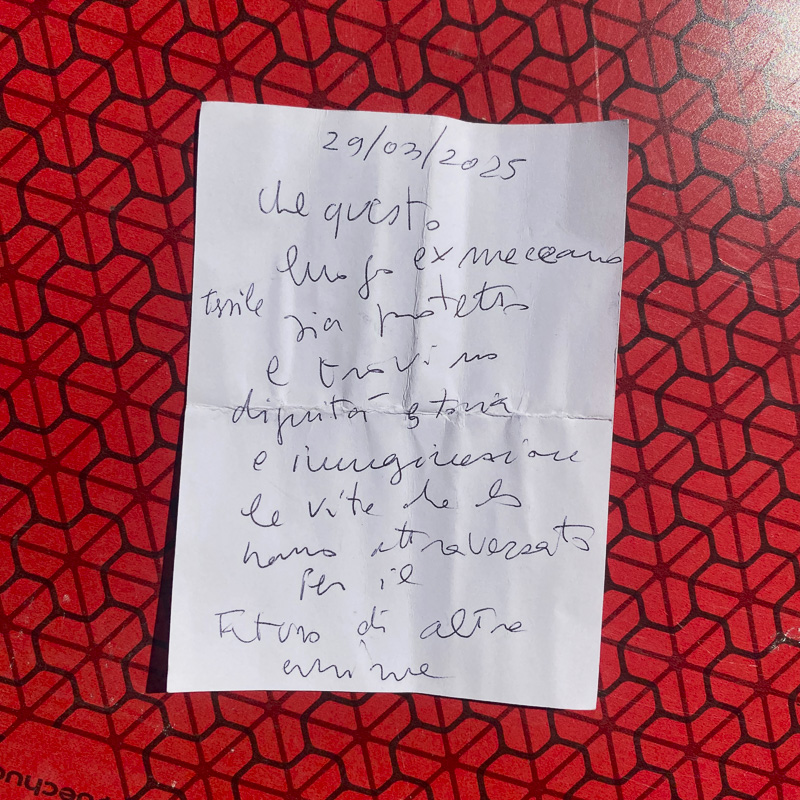 29/03/2025
che questo
luogo ex meccano
tessile sia protetto
e trovino
dignità storia
e immaginazione
le vite che lo
hanno attraversato
per il
futuro di altre
anime